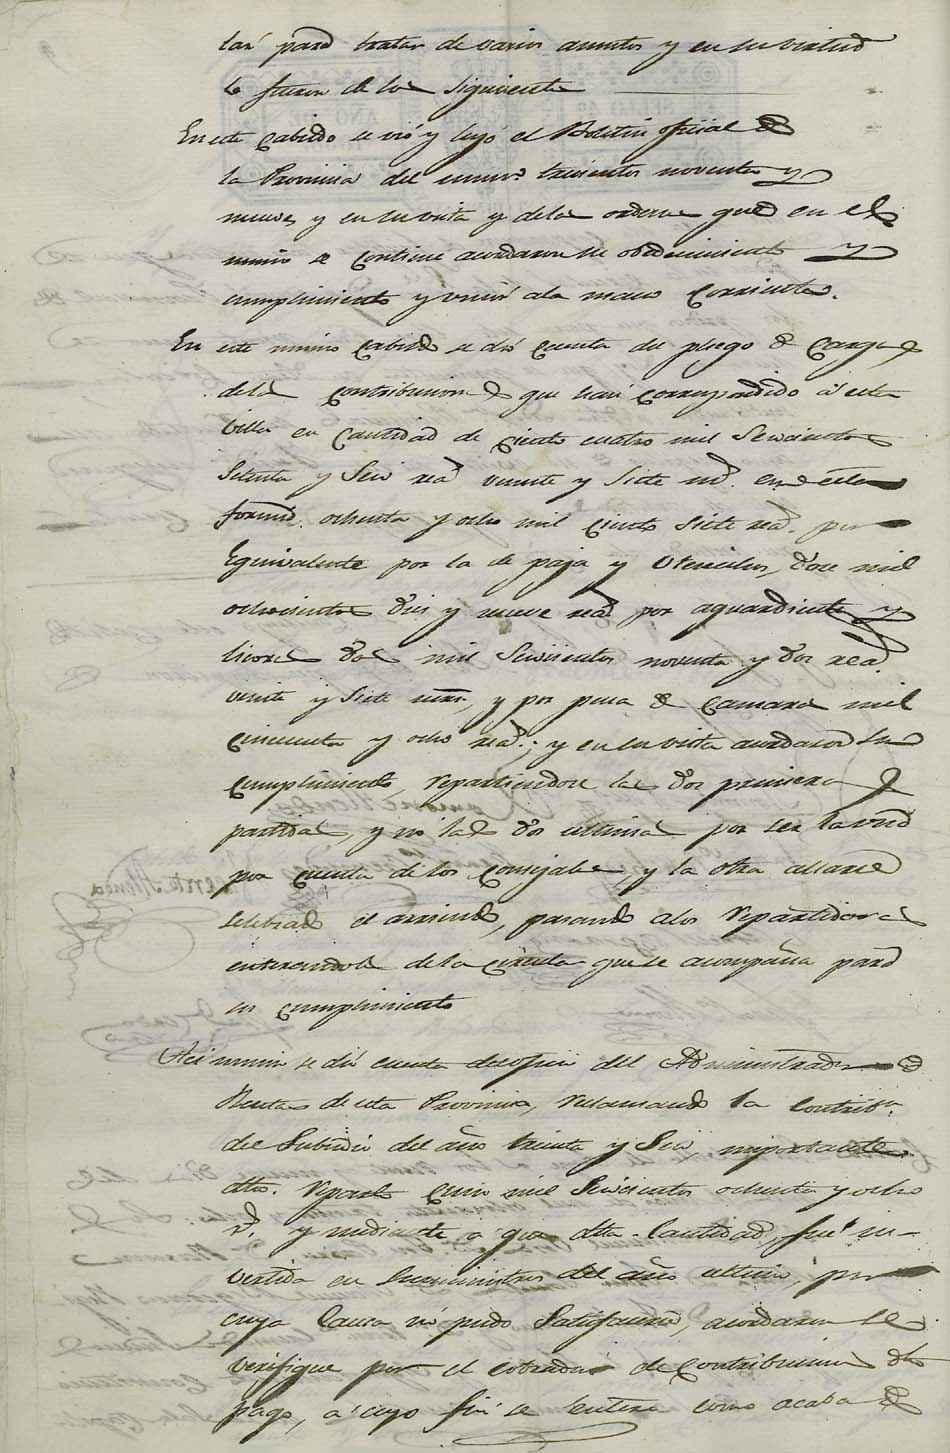 lar para tratar de varios asuntos y en su virtud
lo fueron de los siguientes
En este Cabildo se vió y leyó el Boletin oficial de
la Provincia del numo. trescientos noventa y
nueve, y en su vista y de las ordenes que en el
mismo se contiene acordaron su obedecimiento y
cumplimiento y unir á la mano corriente.
En este mismo Cabildo se dió cuenta del pliego de Cargo
de las Contribuciones que han correspondido á esta
villa en cantidad de ciento cuatro mil seiscientos
setenta y seis reas. veinte y siete ms. en esta
forma. ochenta y ocho mil ciento siete reas. por
Equivalente por la de paja y Utencilios, doce mil
ochocientos diez y nueve reas. por aguardiente y
licores dos mil seiscientos noventa y dos reas.
veinte y siete mrs., y por pena de Camara mil
cincuenta y ocho reas.; y en su vista acordaron su
cumplimiento, repartiendose las dos primeras
partidas, y no las dos ultimas por ser la una
por cuenta de los Consejales y la otra
selebrado el arriendo, pasando a los repartidores
enterandoles de la circular que se acompaña para
su cumplimiento
Asi mismo se dió cuenta del oficio del Administrador de
Rentas de esta Provincia, reclamando la Contribn.
de Subsidio del año treinta y seis, importante
dho. reparto cinco mil seiscientos ochenta y ocho
r. y mediante á que dha. Cantidad, fue in-
vertida en suministros del año ultimo, por
cuya causa no pudo satisfacerse, acordaron se
verifique por el cobrador de Contribuciones dho
pago, á cuyo fin se entere como acaba de